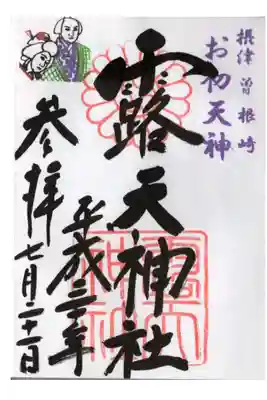 摂津 曽根崎
お初天神
露天神社
平成三十年
参拝 七月二十一日